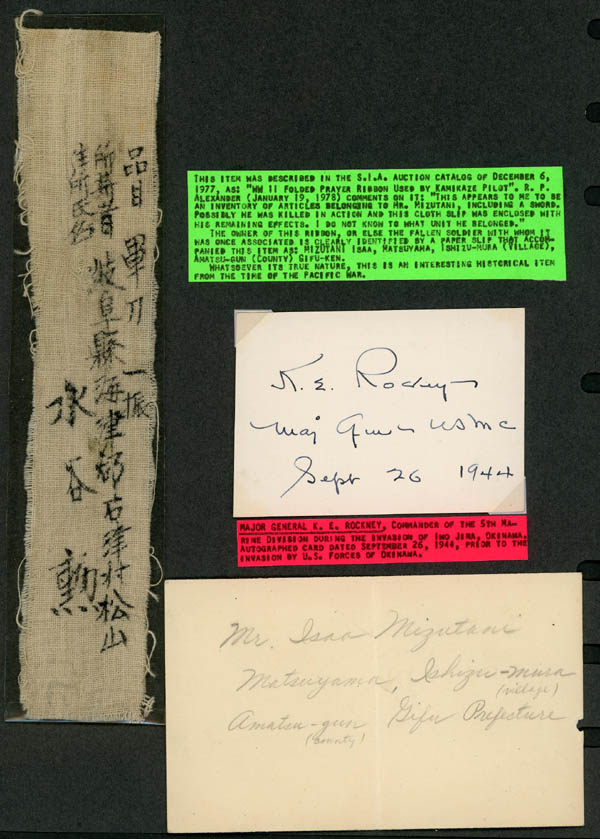 品目 軍刀 一振
所持者
住所氏名
岐阜縣海津郡石津村松山
水谷 勲
THIS ITEM WAS DESCRIBED IN THE S.I.A. AUCTION CATALOG OF DECEMBER 6,
1977, AS: "WW II FOLDED PRAYER RIBBON USED BY KAMIKAZE PILOT". R. P.
ALEXANDER (JANUARY 19, 1978) COMMENTS ON IT: "THIS APPEARS TO ME TO BE
AN INVENTORY OF ARTICLES BELONGING TO MR. MIZUTANI, INCLUDING A SWORD.
POSSIBLY HE WAS KILLED IN ACTION AND THIS CLOTH SLIP WAS ENCLOSED WITH
HIS REMAINING EFFECTS. I DO NOT KNOW TO WHAT UNIT HE BELONGED."
THE OWNER OF THIS RIBBON, OR ELSE THE FALLEN SOLDIER WITH WHOM IT
WAS ONCE ASSOCIATED IS CLEARLY IDENTIFIED BY A PAPER SLIP THAT ACCOM-
PANIED THIS ITEM AS: MIZUTANI ISAA, MATSUYAMA, ISHIZU-MURA (VILLAGE),
AMATSU-GUN (COUNTY) GIFU-KEN.
WHATSOEVER ITS TRUE NATURE, THIS IS AN INTERESTING HISTORICAL ITEM
FROM THE TIME OF THE PACIFIC WAR.
K. E. Rockey
Maj Gen USMC
Sept 26 1944
MAJOR GENERAL K. E. ROCKNEY, COMMANDER OF THE 5TH MA-
RINE DIVISION DURING THE INVASION OF IWO JIMA, OKINAWA.
AUTOGRAPHED CARD DATED SEPTEMBER 26, 1944, PRIOR TO THE
INVASION BY U.S. FORCES OF OKINAWA.
Mr. Isao Mizutani
Matsuyama, Ishizu-mura
(village)
Amatsu-gun Gifu Prefecture
(county)